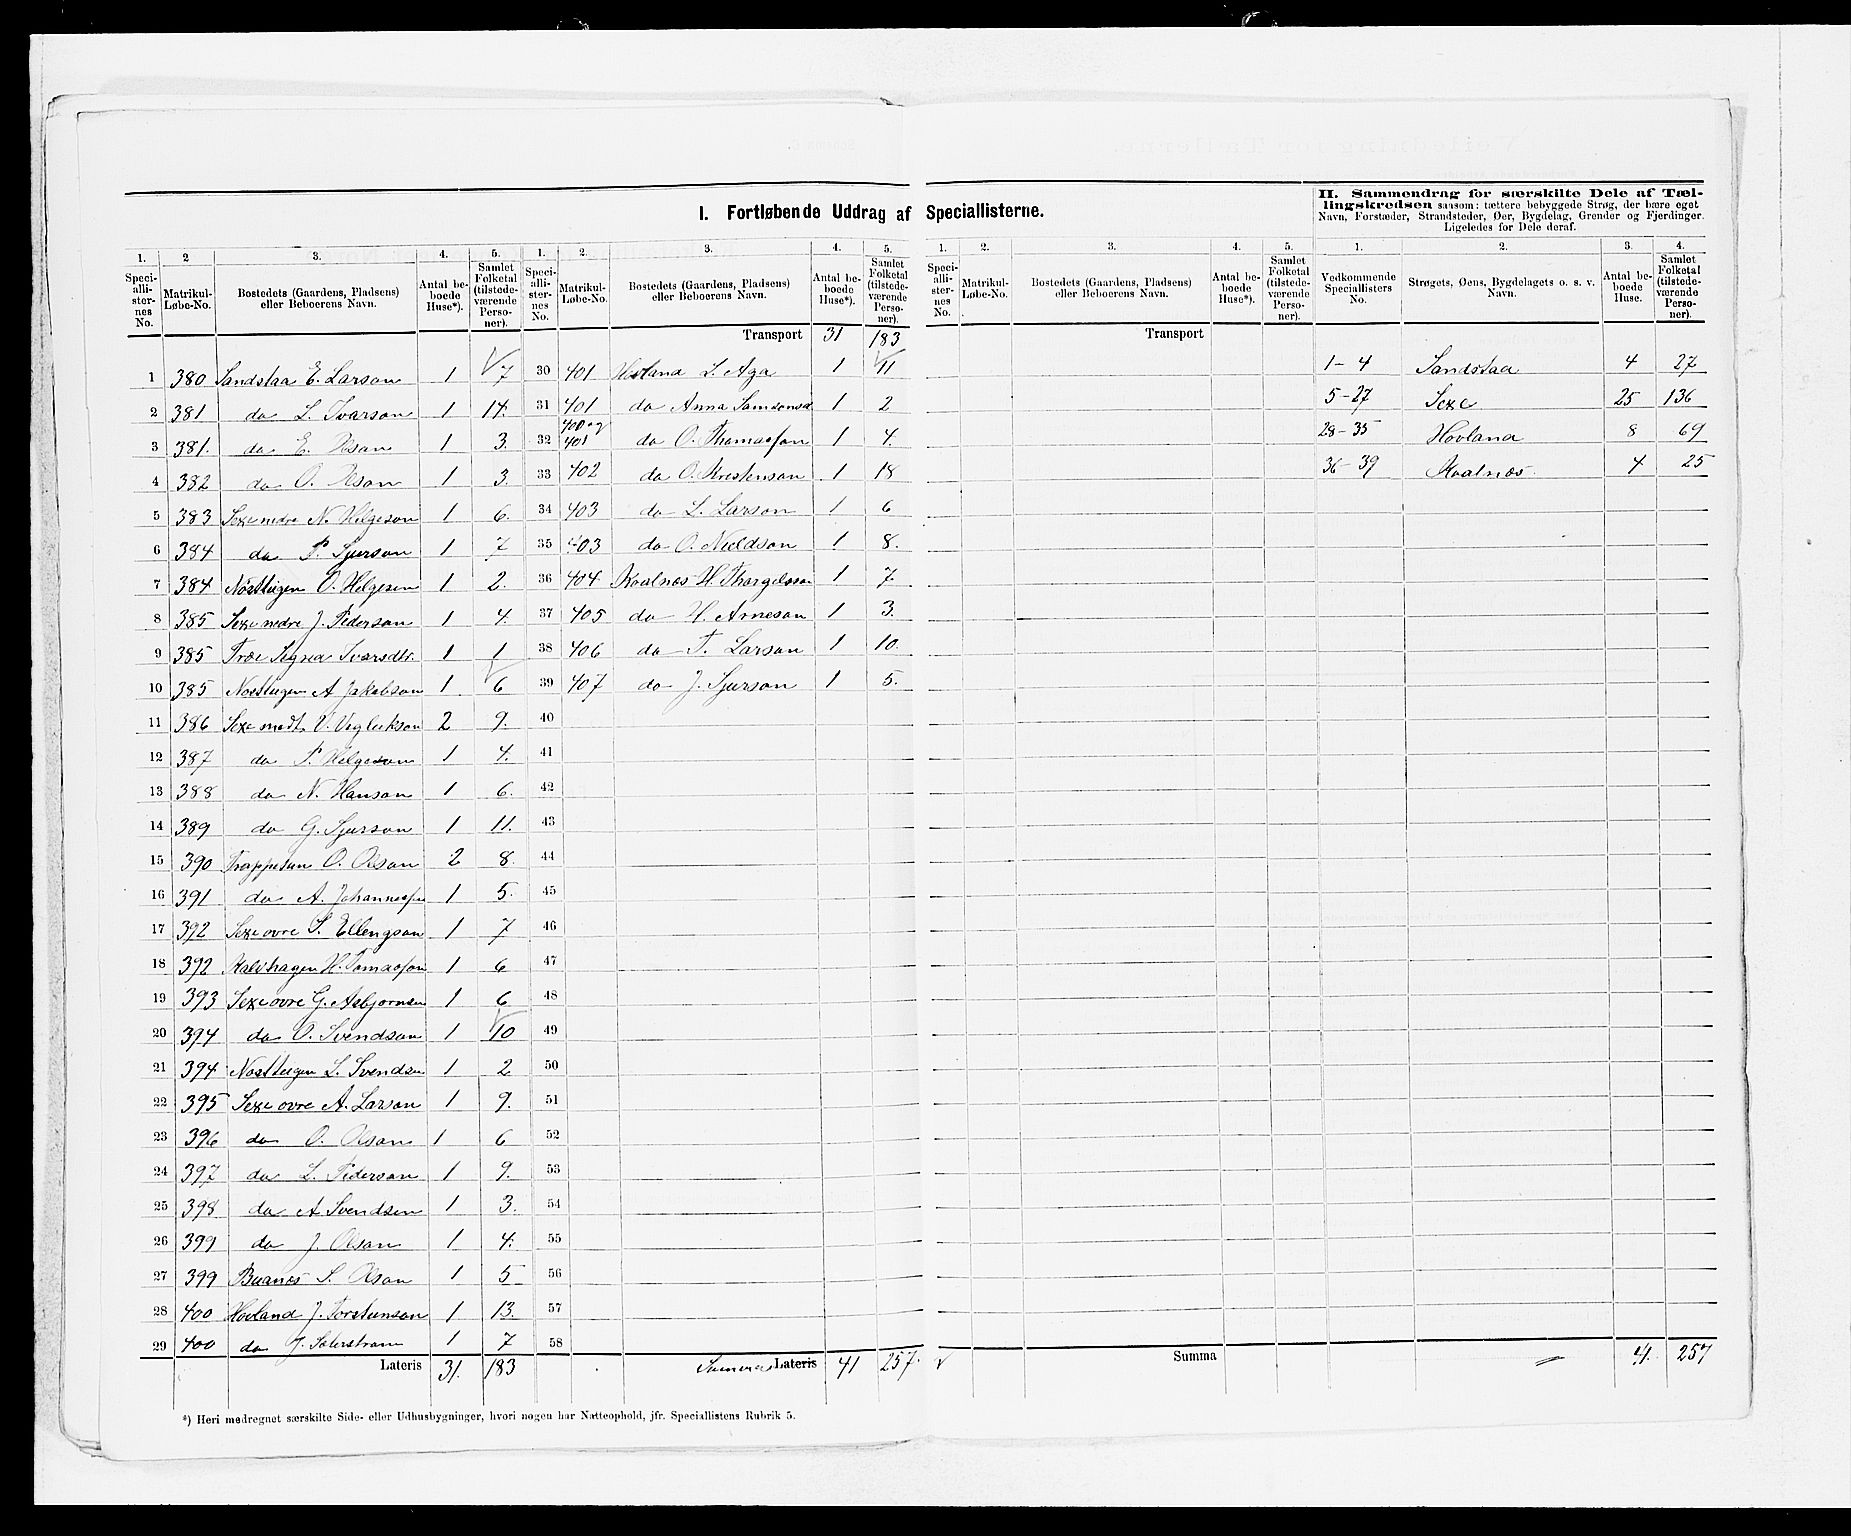 I. Fortløbende Uddrag af Speciallisterne.
II. Sammendrag for særskilte Dele af Tæl-
lingskredsen saasom: tættere bebyggede Strøg, der bære eget
Navn, Forstæder, Strandsteder, Øer, Bygdelag, Grender og Fjerdinger.
Ligeledes for Dele deraf.
1. 2 3. 4. 5. 1. 2. 3. 4. 5. 1. 2. 3. 4. 5. 1. 2. 3. 4.
Speci-alli-ster-nes No. Matrikul-Løbe-No. Bostedets (Gaardens, Pladsens) eller Beboerens Navn. Antal be-boede Huse*). Samlet Folketal (tilstede-værende Perso-ner).
Speci-alli-ster-nes No. Matrikul-Løbe-No. Bostedets (Gaardens, Pladsens) eller Beboerens Navn. Antal be-boede Huse*). Samlet Folketal (tilstede-værende Perso-ner).
Speci-alli-ster-nes No. Matrikul-Løbe-No. Bostedets (Gaardens, Pladsens) eller Beboerens Navn. Antal be-boede Huse*). Samlet Folketal (tilstede-værende Perso-ner).
Vedkommende Speciallisters No. Strøgets, Øens, Bygdelagets o. s. v. Navn. Antal be-boede Huse. Samlet Folketal (tilstede-værende Perso-ner).
1 380 Sandstaa E. Larson 1 7
2 381 do L. Ivarson 1 14.
3 381. do E. Olson 1 3.
4 382 do O. Olson 1 3.
5 383 Sexe nedre N. Helgeson 1 6.
6 384 do P. Sjurson 1 7
7 384 Nostteigen O. Helgesen 1 2.
8 385 Sexe nedre J. Pederson 1 4.
9 385 Træe Signa Ivarsdtr. 1 1
10 385 Nostteigen A Jakobson 1 6
11 386 Sexe medt. V. Vigleikson 2 9.
12 387 do P. Helgeson 1 4.
13 388 do N. Hanson 1 6.
14 389 do G. Sjurson 1 11.
15 390 Trappetun O. Olson 2 8.
16 391 do A. Johannesson 1 5.
17 392 Sexe ovre S. Ellengson 1 7
18 392 Kalvhagen H. Tomasson 1 6
19 393 Sexe ovre G. Asbjornsen 1 6
20 394 do O. Svendson 1 10
21 394 Nostteigen L. Svendsen 1 2
22 395 Sexe ovre A. Larson 1 9.
23 396 do O. Olson 1 6
24 397 do L. Pederson 1 9.
25 398 do A Svendsen 1 3.
26 399 do J. Olson 1 4.
27 399 Buanes S. Olson 1 5
28 400 Hovland J. Torsteinson 1 13.
29 400 do J. Saterstrom 1 7
Lateris 31. 183
Transport 31 183
30 401 Hovland L. Aga 1 11
31 401 do Anna Samsonsd 1 2
32 400 og 401 do O. Thomasson 1 4.
33 402 do O. Kristenson 1 18
34 403 do L. Larson 1 6
35 403 do O. Nieldson 1 8.
36 404 Kvalnos H. Thorgelsson 1 7.
37 405 do H. Arneson 1 3.
38 406 do T. Larson 1 10.
39 407 do J. Sjurson 1 5.
40
41
42
43
44
45
46
47
48
49
50
51
52
53
54
55
56
57
58
Summa Lateris 41 257.
Transport
Summa
1-4 Sandstaa 4 27
5-27 Sexe 25 136
28-35 Hovland 8 69
36-39 Kvalnos. 4 25
41. 257
*) Heri medregnet særskilte Side- eller Udhusbygninger, hvori nogen har Natteophold, jfr. Speciallistens Rubrik 5.